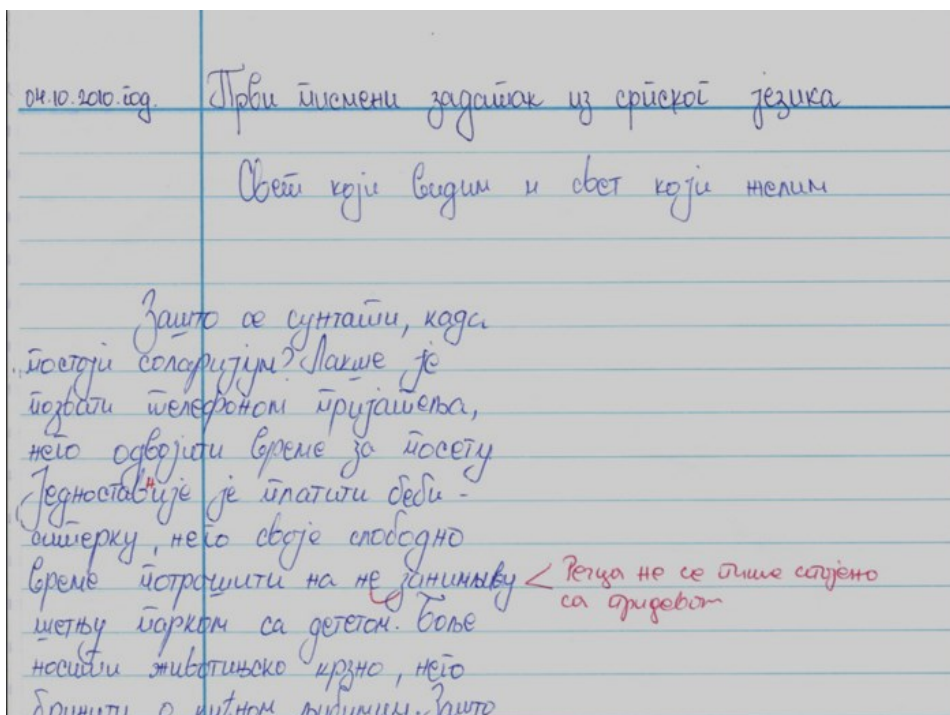 04.10.2010.год. Први писмени задатак из српског језика
Свет који видим и свет који желим
Зашто се сунчати, када
постоји соларијум? Лакше је
позвати телефоном пријатеља,
него одвојити време за посету
Једноставније је платити беби-
ситерку, него своје слободно
време потрошити на не занимљву < Речца не се пише спојено
са придевом
шетњу парком са дететом. Боље
носити животињско крзно, него
бринути о кућном љубимцу. Зашто